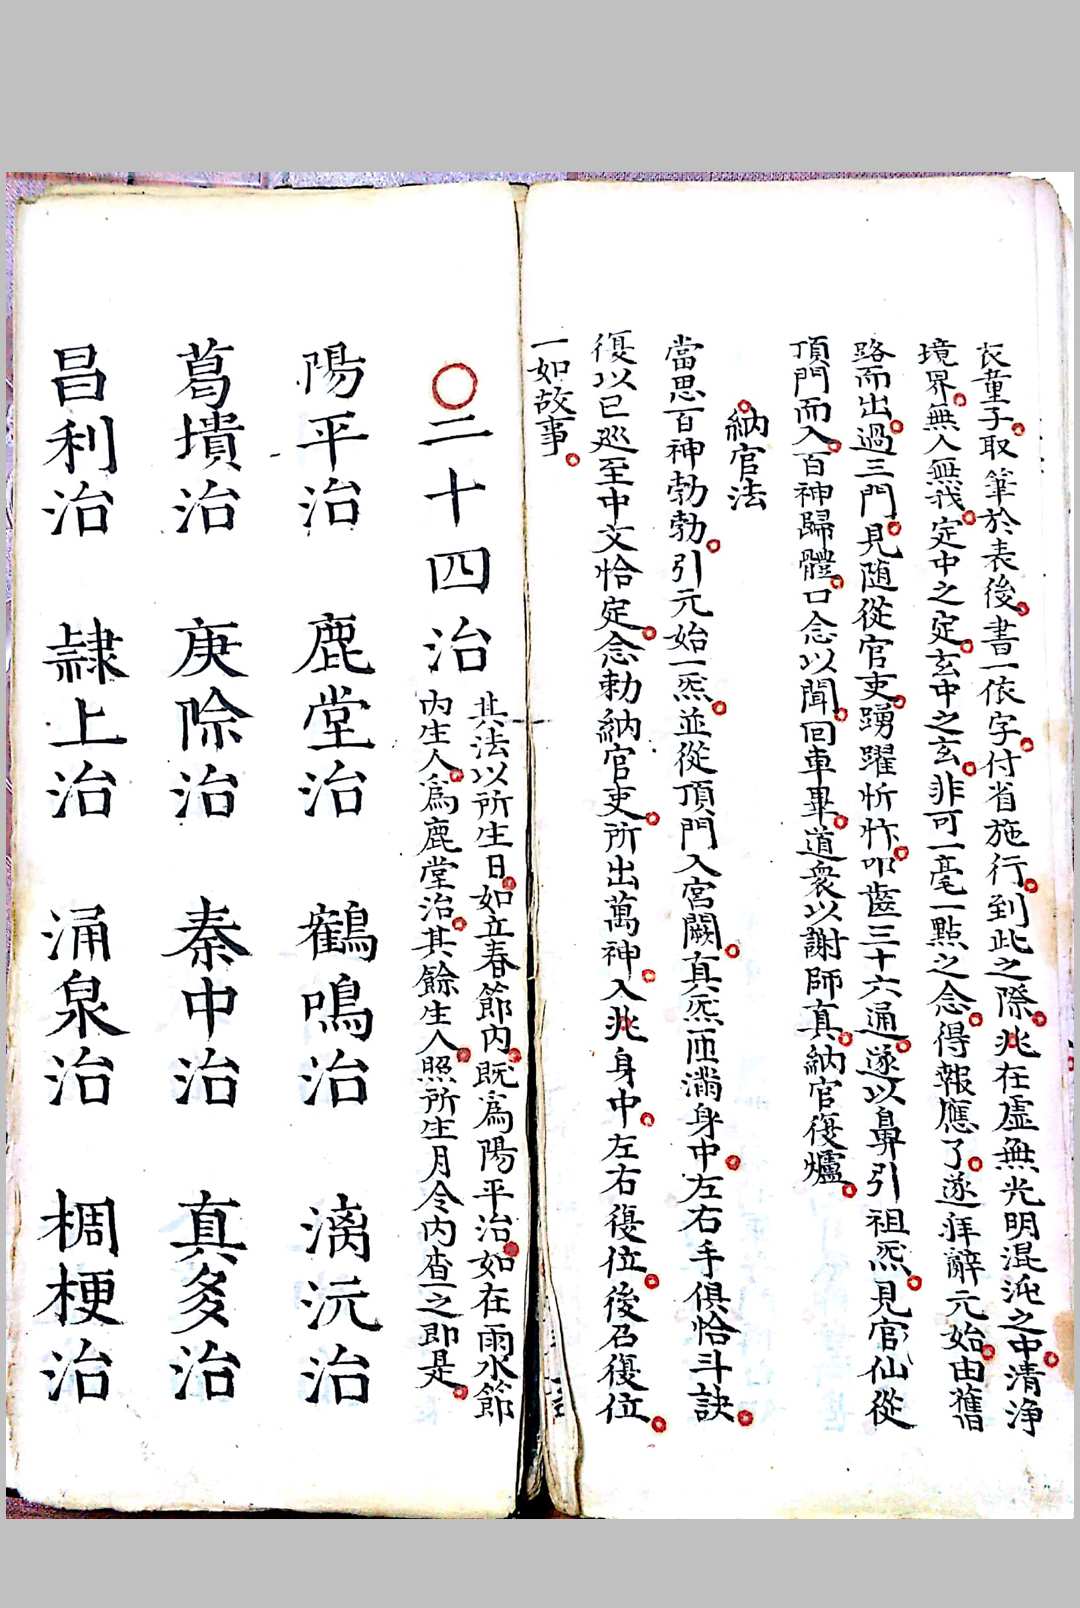 衣童子取筆於表後書一依字付省施行到此之際兆在虛無光明混沌之中清净
境界無人無我定中之定玄中之玄非可一毫一點之念得報應了遂拜辭元始由舊
路而出過三門見随從官吏踴躍忻忭叩齒三十六通遂以鼻引祖炁見官仙從
頂門而入百神歸體口念以聞回車畢道衆以謝師真納官復爐
納官法
當思百神勃勃引元始一炁並從頂門入宮闕真炁匝滿身中左右手俱恰斗訣
復以巳巡至中文恰定念勅納官吏所出萬神入兆身中左右復位後召復位
一如故事
〇二十四治
其法以所生日如立春節内既為陽平治如在雨水節
内生人為鹿堂治其餘生人照所生月令内查之即是
陽平治 鹿堂治 鶴鳴治 漓沅治
葛璝治 庚除治 秦中治 真多治
昌利治 隷上治 涌泉治 稠梗治